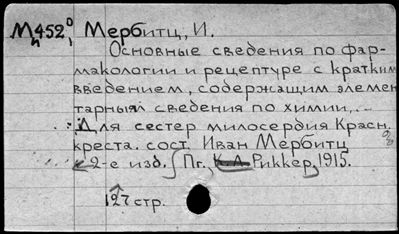 М452, Мербитц, И.
Основные сведения по фар-
макологии и рецептуре с кратким
введением, содержащим элемен
тарныя сведения по химии,...
Для сестер милосердия Красн.
креста. сост. Иван Мербитц
2-е изд. Пг., К.Л. Риккер, 1915.
127 стр.